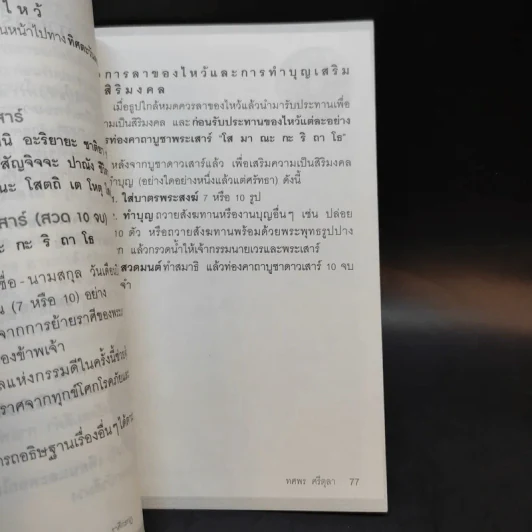 ไหว้
นหน้าไปทางทิศตะวัน
สาร์
นิ อะริยายะ ชาติยา
สัญจิจจะ ปาณัง ชีวิ
ณะ โสตถิ เต โหตุ
สาร์ (สวด 10 จบ)
กะ ริ ถา โธ
ชื่อ-นามสกุล วันเดือนปี
น (7 หรือ 10) อย่าง
จากการย้ายราศีของพระ
องข้าพเจ้า
ลแห่งกรรมดีในครั้งนี้
ราศจากทุกข์โศกโรคภัย
ารถอธิษฐานเรื่องอื่นๆ ได้
การลาของไหว้และการทำบุญเสริม
สิริมงคล
เมื่อธูปใกล้หมดควรลาของไหว้แล้วนำมารับประทานเพื่อ
วามเป็นสิริมงคล และก่อนรับประทานของไหว้แต่ละอย่าง
รท่องคาถาบูชาพระเสาร์ "โส มา ณะ กะ ริ ถา โธ"
หลังจากบูชาดาวเสาร์แล้ว เพื่อเสริมความเป็นสิริมงคล
ทำบุญ (อย่างใดอย่างหนึ่งแล้วแต่ศรัทธา) ดังนี้
. ใส่บาตรพระสงฆ์ 7 หรือ 10 รูป
. ทำบุญถวายสังฆทานหรืองานบุญอื่นๆ เช่น ปล่อย
10 ตัว หรือถวายสังฆทานพร้อมด้วยพระพุทธรูปปาง
ก แล้วกรวดน้ำให้เจ้ากรรมนายเวรและพระเสาร์
สวดมนต์ทำสมาธิ แล้วท่องคาถาบูชาดาวเสาร์ 10 จบ
จำ
ทศพร ศรีตุลา 77